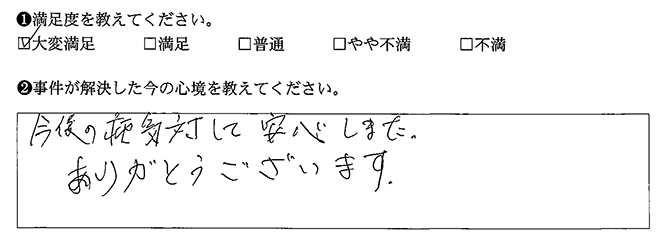 ❶満足度を教えてください。
☑大変満足 □満足 □普通 □やや不満 □不満
❷事件が解決した今の心境を教えてください。
今後の病気対して安心しました。
ありがとうございます。